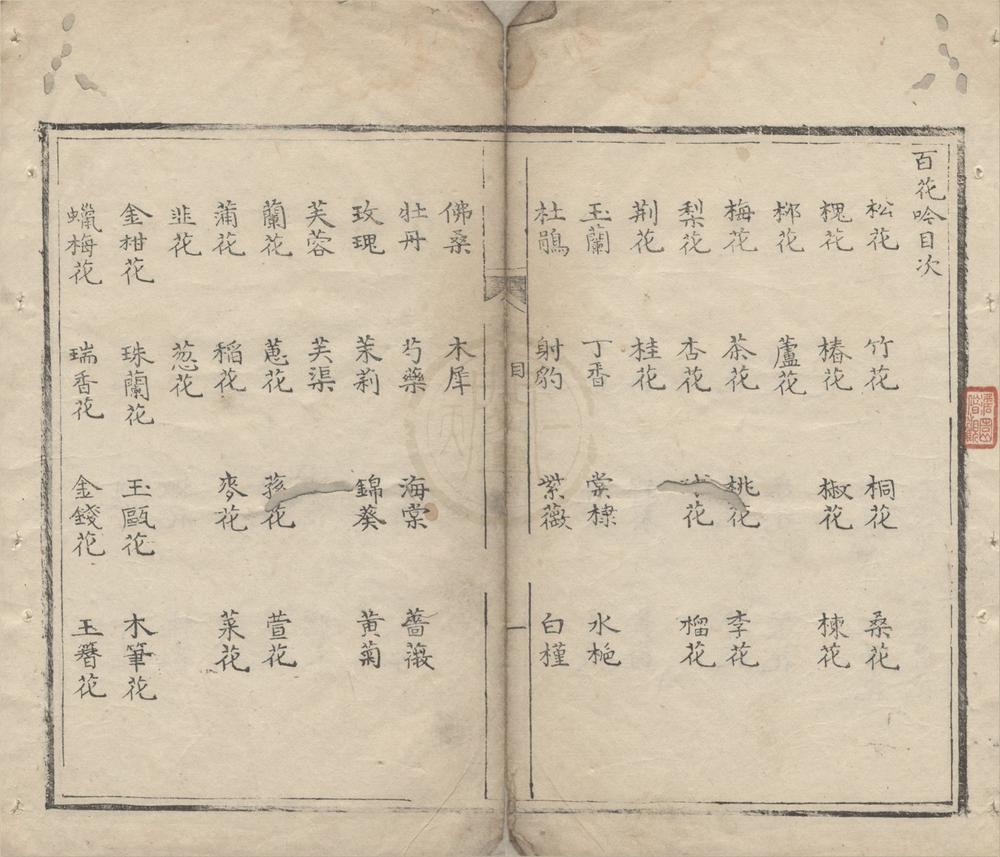 百花吟目次
松花 竹花 桐花 桑花
槐花 椿花 椒花 楝花
桞花 蘆花
梅花 茶花 桃花 李花
梨花 杏花 花 榴花
荆花 桂花
玉蘭 丁香 棠棣 水梔
杜鵑 射豹 紫薇 白槿
目 一
佛桑 木犀
牡丹 芍藥 海棠 薔薇
玫瑰 茉莉 錦葵 黃菊
芙蓉 芙渠
蘭花 蕙花 花 萱花
蒲花 稻花 麥花 菜花
韭花 葱花
金柑花 珠蘭花 玉甌花 木筆花
蠟梅花 瑞香花 金錢花 玉簪花